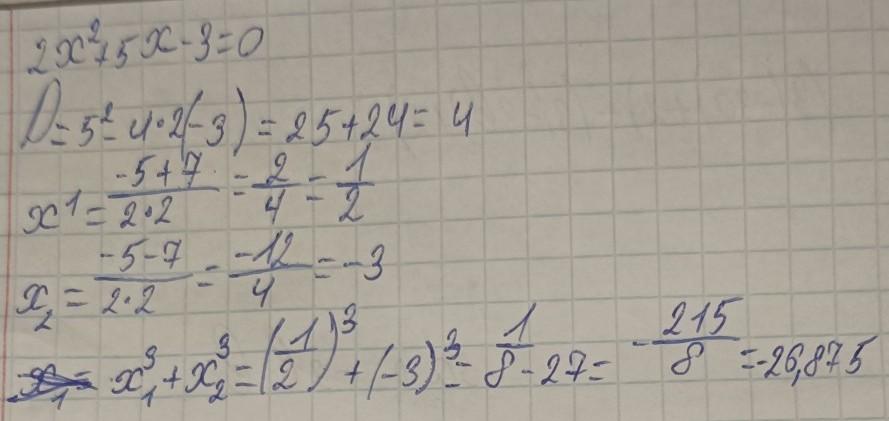 2x²+5x-3=0
D=5²-4·2(-3)=25+24=4
x1=(-5+7)/(2·2)=2/4=1/2
x₂=(-5-7)/(2·2)=-12/4=-3
x₁³+x₂³=(1/2)³+(-3)³=1/8-27=-215/8=-26,875